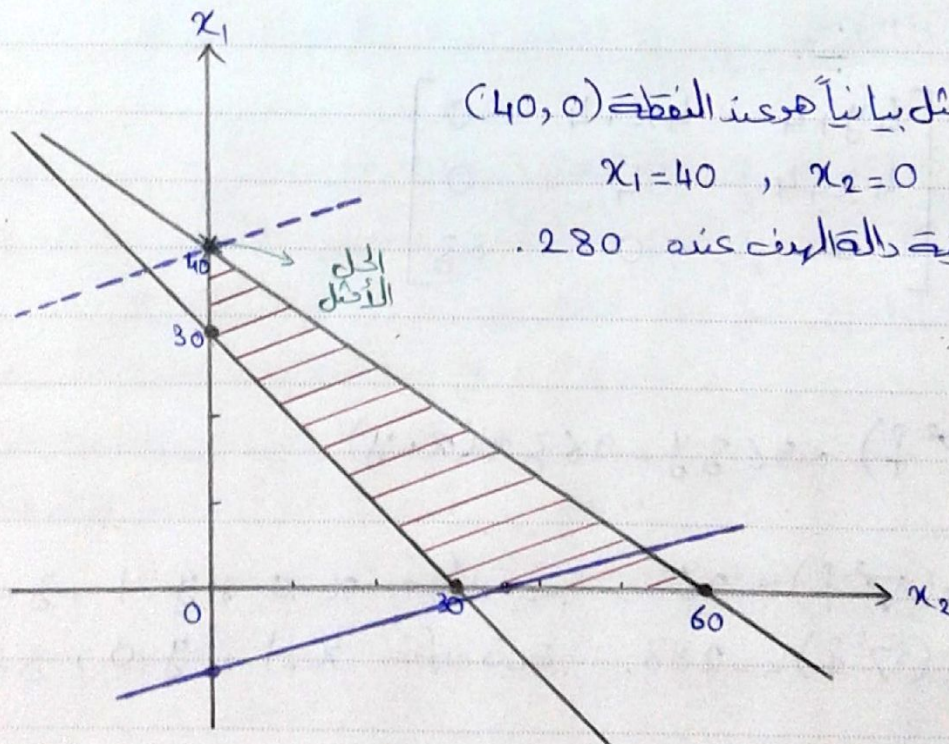 x₁
بيانياً هو عند النقطة (40, 0)
x₁=40 , x₂=0
دالة الهدف عنده 280 .
40
الحل
الأمثل
30
0
30
60
x₂